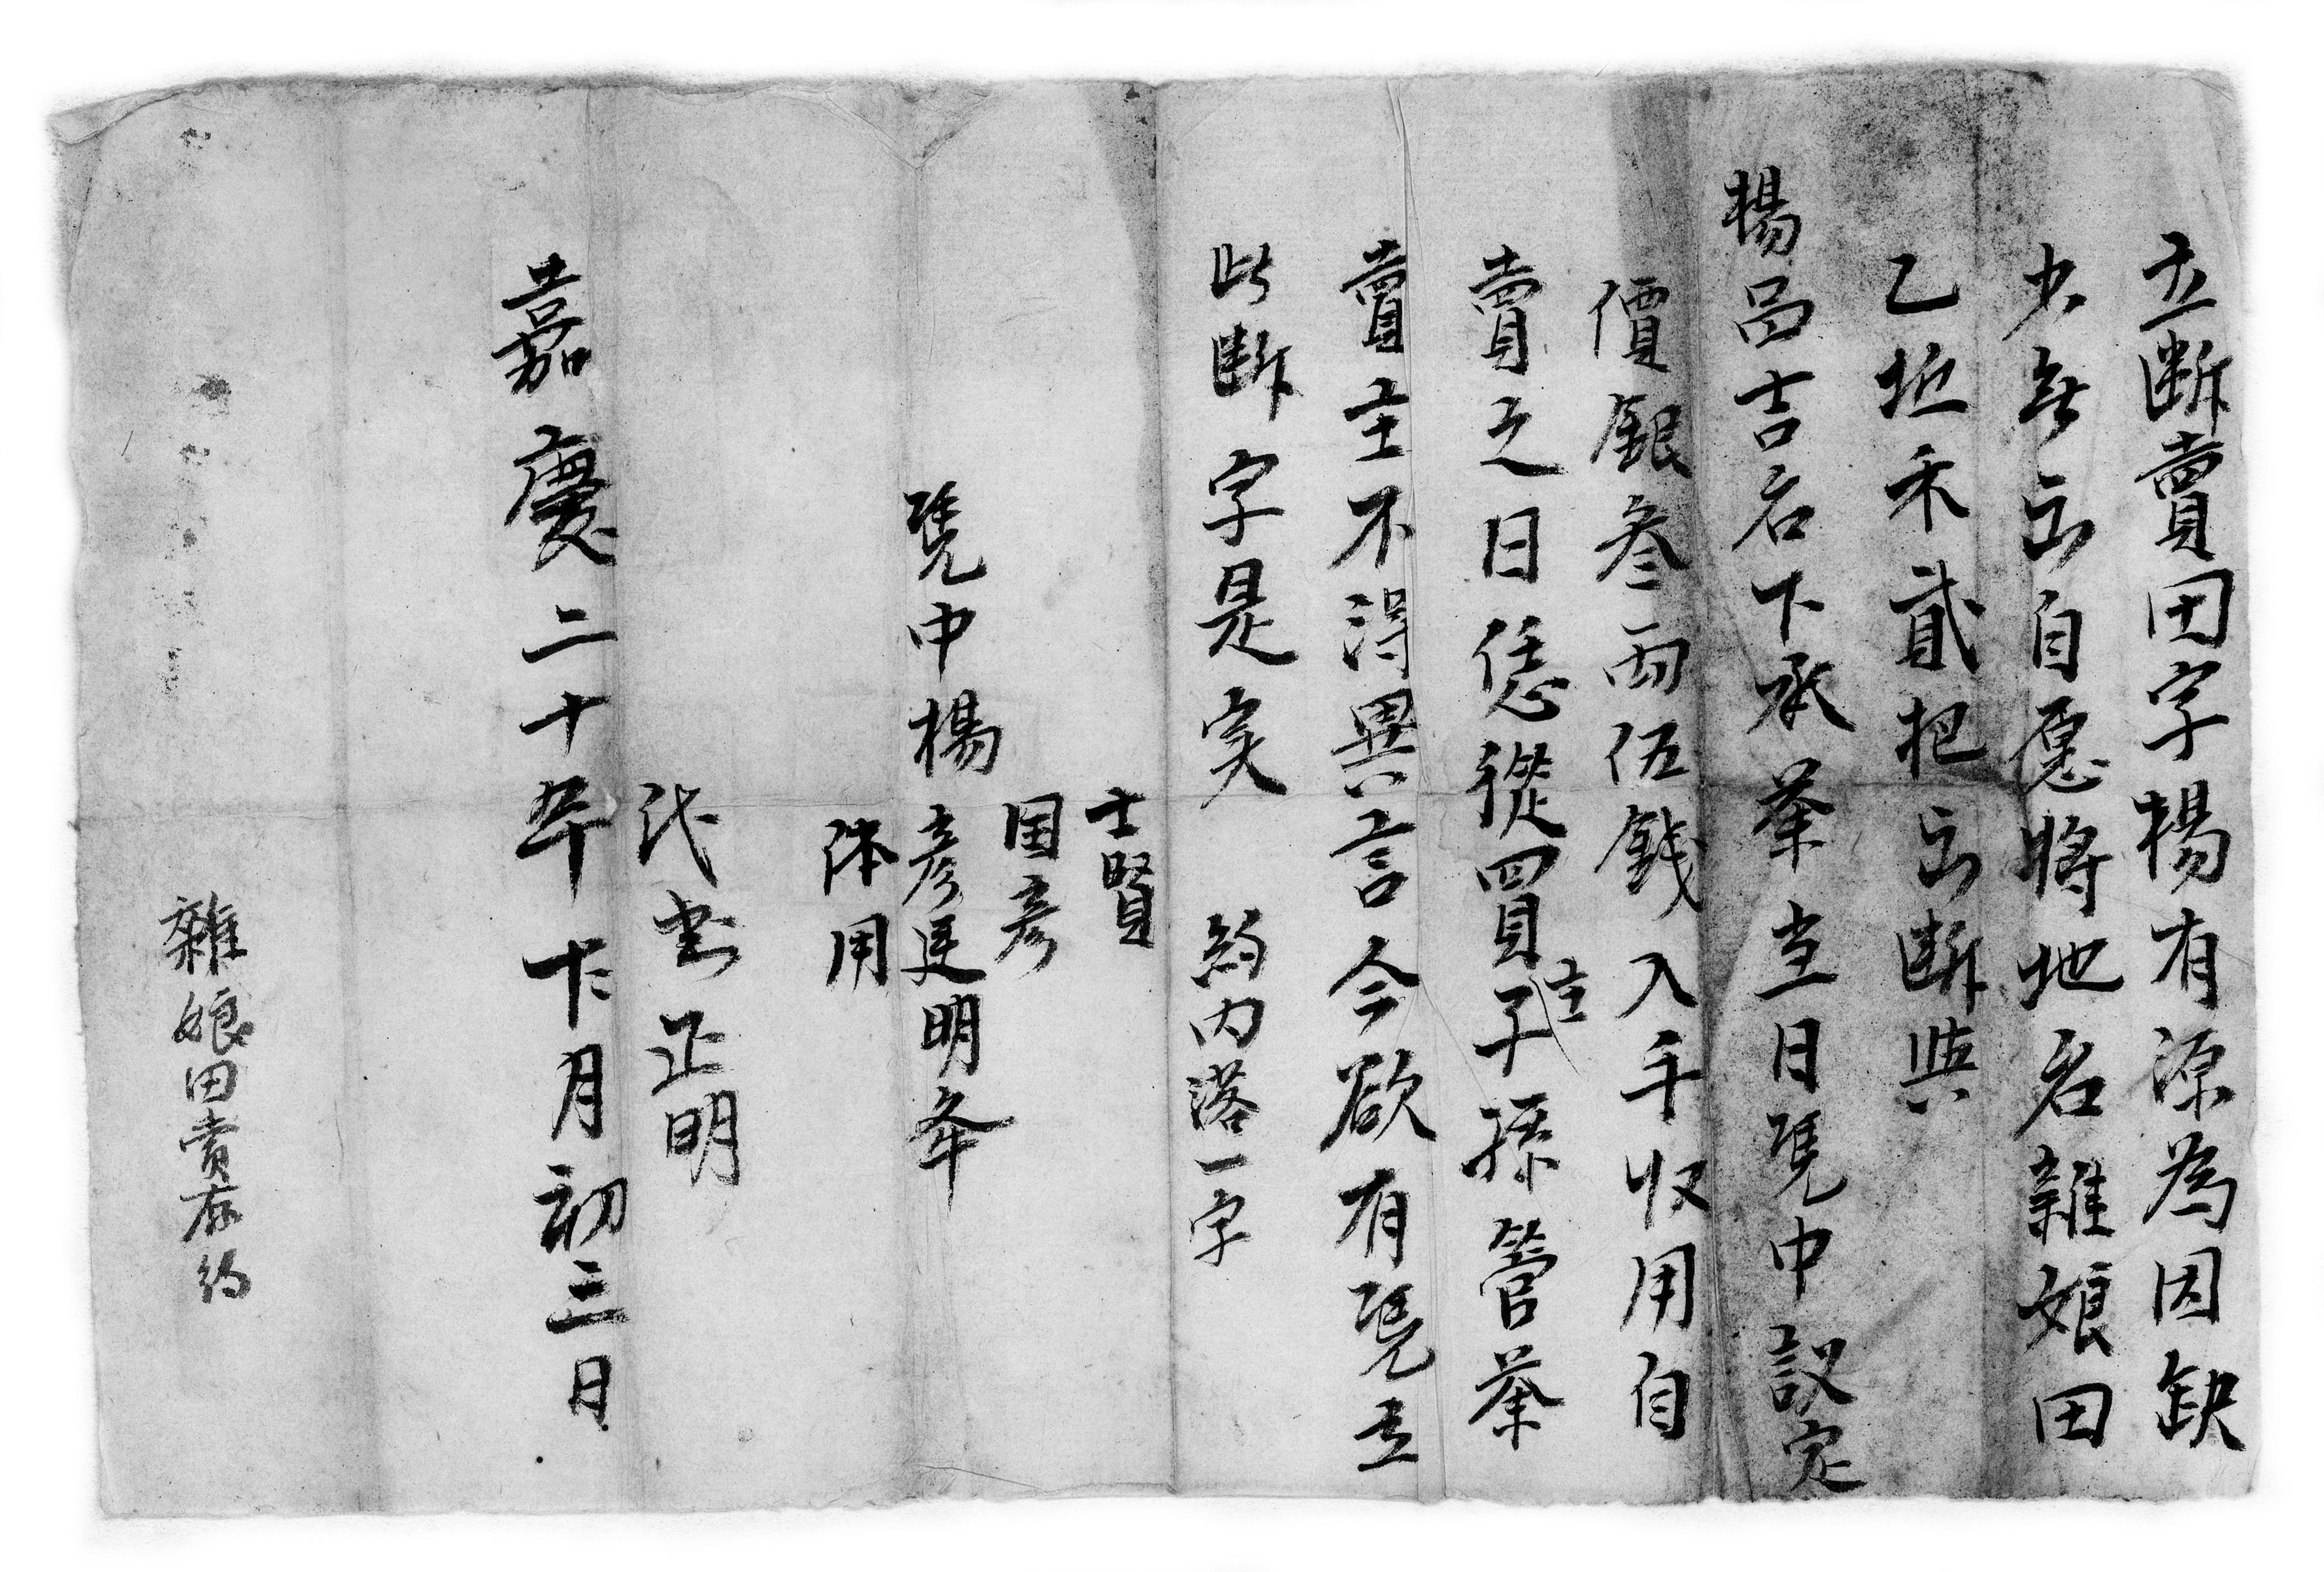 立断賣田字楊有源為因缺
少無出自愿将地名雜娘田
乙坵禾貳把出断與
楊昌吉名下承業当日凴中議定
價銀叁両伍錢入手收用自
賣之日恁從買主子孫管業
賣主不得異言今欲有凴立
此断字是实 約内落一字
士賢
国彦
凴中楊彦廷明年
体用
代書正明
嘉慶二十年十二月初三日
雜娘田賣存約